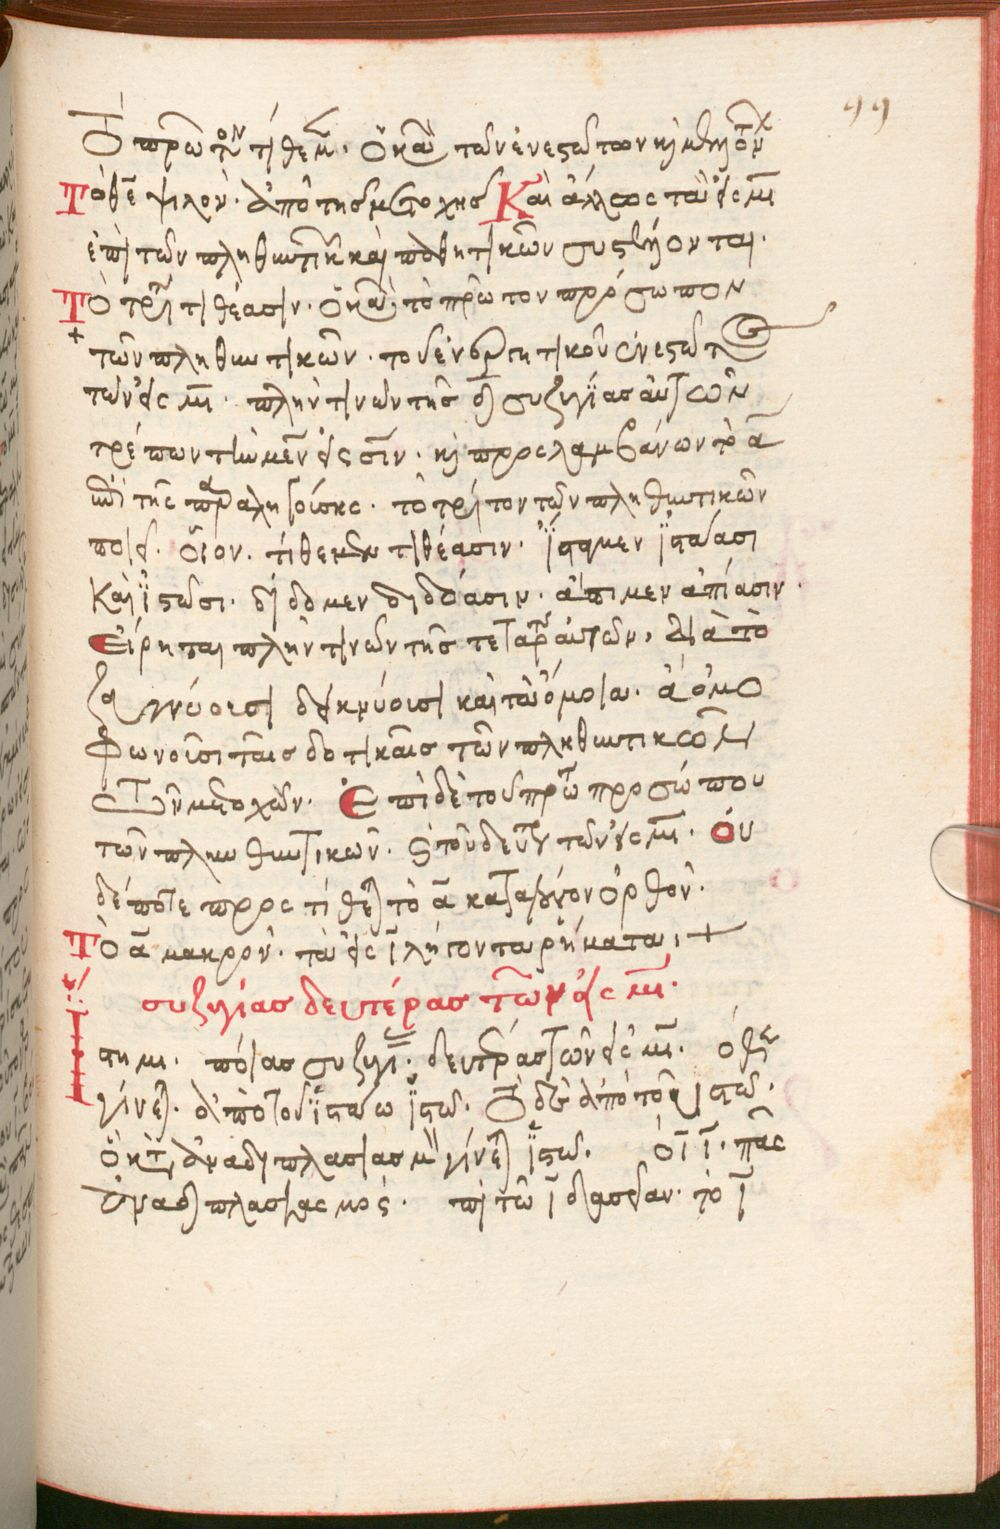 99
Τὸ πρῶτον τίθεμεν. ὁ κανὼν τῶν ἐνεστώτων καὶ μετοχῶν
Τὸ θε ψιλὸν. ἀπὸ τῆς μετοχῆς Καὶ ἄλλως τὰ εἰς μι
ἐπὶ τῶν πληθυντικῶν καὶ παθητικῶν συστέλλονται.
Τὸ τρίτον τιθέασιν. ὁ κανὼν τὸ πρῶτον πρόσωπον
τῶν πληθυντικῶν. τοῦ ἐνεργητικοῦ ἐνεστῶτος
τῶν εἰς μι. πλὴν τινῶν τῆς δ συζυγίας αὐτῶν
τρέπον τὴν μεν εἰς σιν. καὶ προσλαμβάνον τὸ α
ἐπὶ τῆς παραληγούσης. τὸ τρίτον τῶν πληθυντικῶν
ποιεῖ. οἷον. τίθεμεν τιθέασιν. ἵσταμεν ἱστάασι
καὶ ἱστῶσι. δίδομεν διδόασιν. ἄπιμεν ἀπίασιν.
Εἴρηται πλὴν τινῶν τῆς τετάρτης αὐτῶν, διὰ τὸ
ζευγνύουσι δεικνύουσι καὶ τὰ ὅμοια. ἃ ὁμο
φωνοῦσι ταῖς δοτικαῖς τῶν πληθυντικῶν
τῶν μετοχῶν. Ἐπὶ δὲ τοῦ πρώτου προσώπου
τῶν πληθυντικῶν. τοῦ δευτέρου τῶν εἰς μι. Οὐ
δέποτε πρὸς τίθεται τὸ α κατὰ λόγον ὀρθὸν.
Τὸ α μακρὸν. τὰ εἰς ι λήγοντα ῥήματα,+
συζυγίας δευτέρας τῶν εἰς μι.
Ἵστημι. ποίας συζυγίας. δευτέρας τῶν εἰς μι. ὅθεν
γίνεται. ἀπὸ τοῦ ἱστάω ἱστῶ. Τὸ δὲ ἀπὸ τοῦ στῶ.
ὃ κατὰ ἀναδιπλασιασμὸν γίνεται ἱστῶ. τὸ ι. πᾶς
ἀναδιπλασιασμός. ἐπὶ τῶ ι δασύναν. τὸ ι